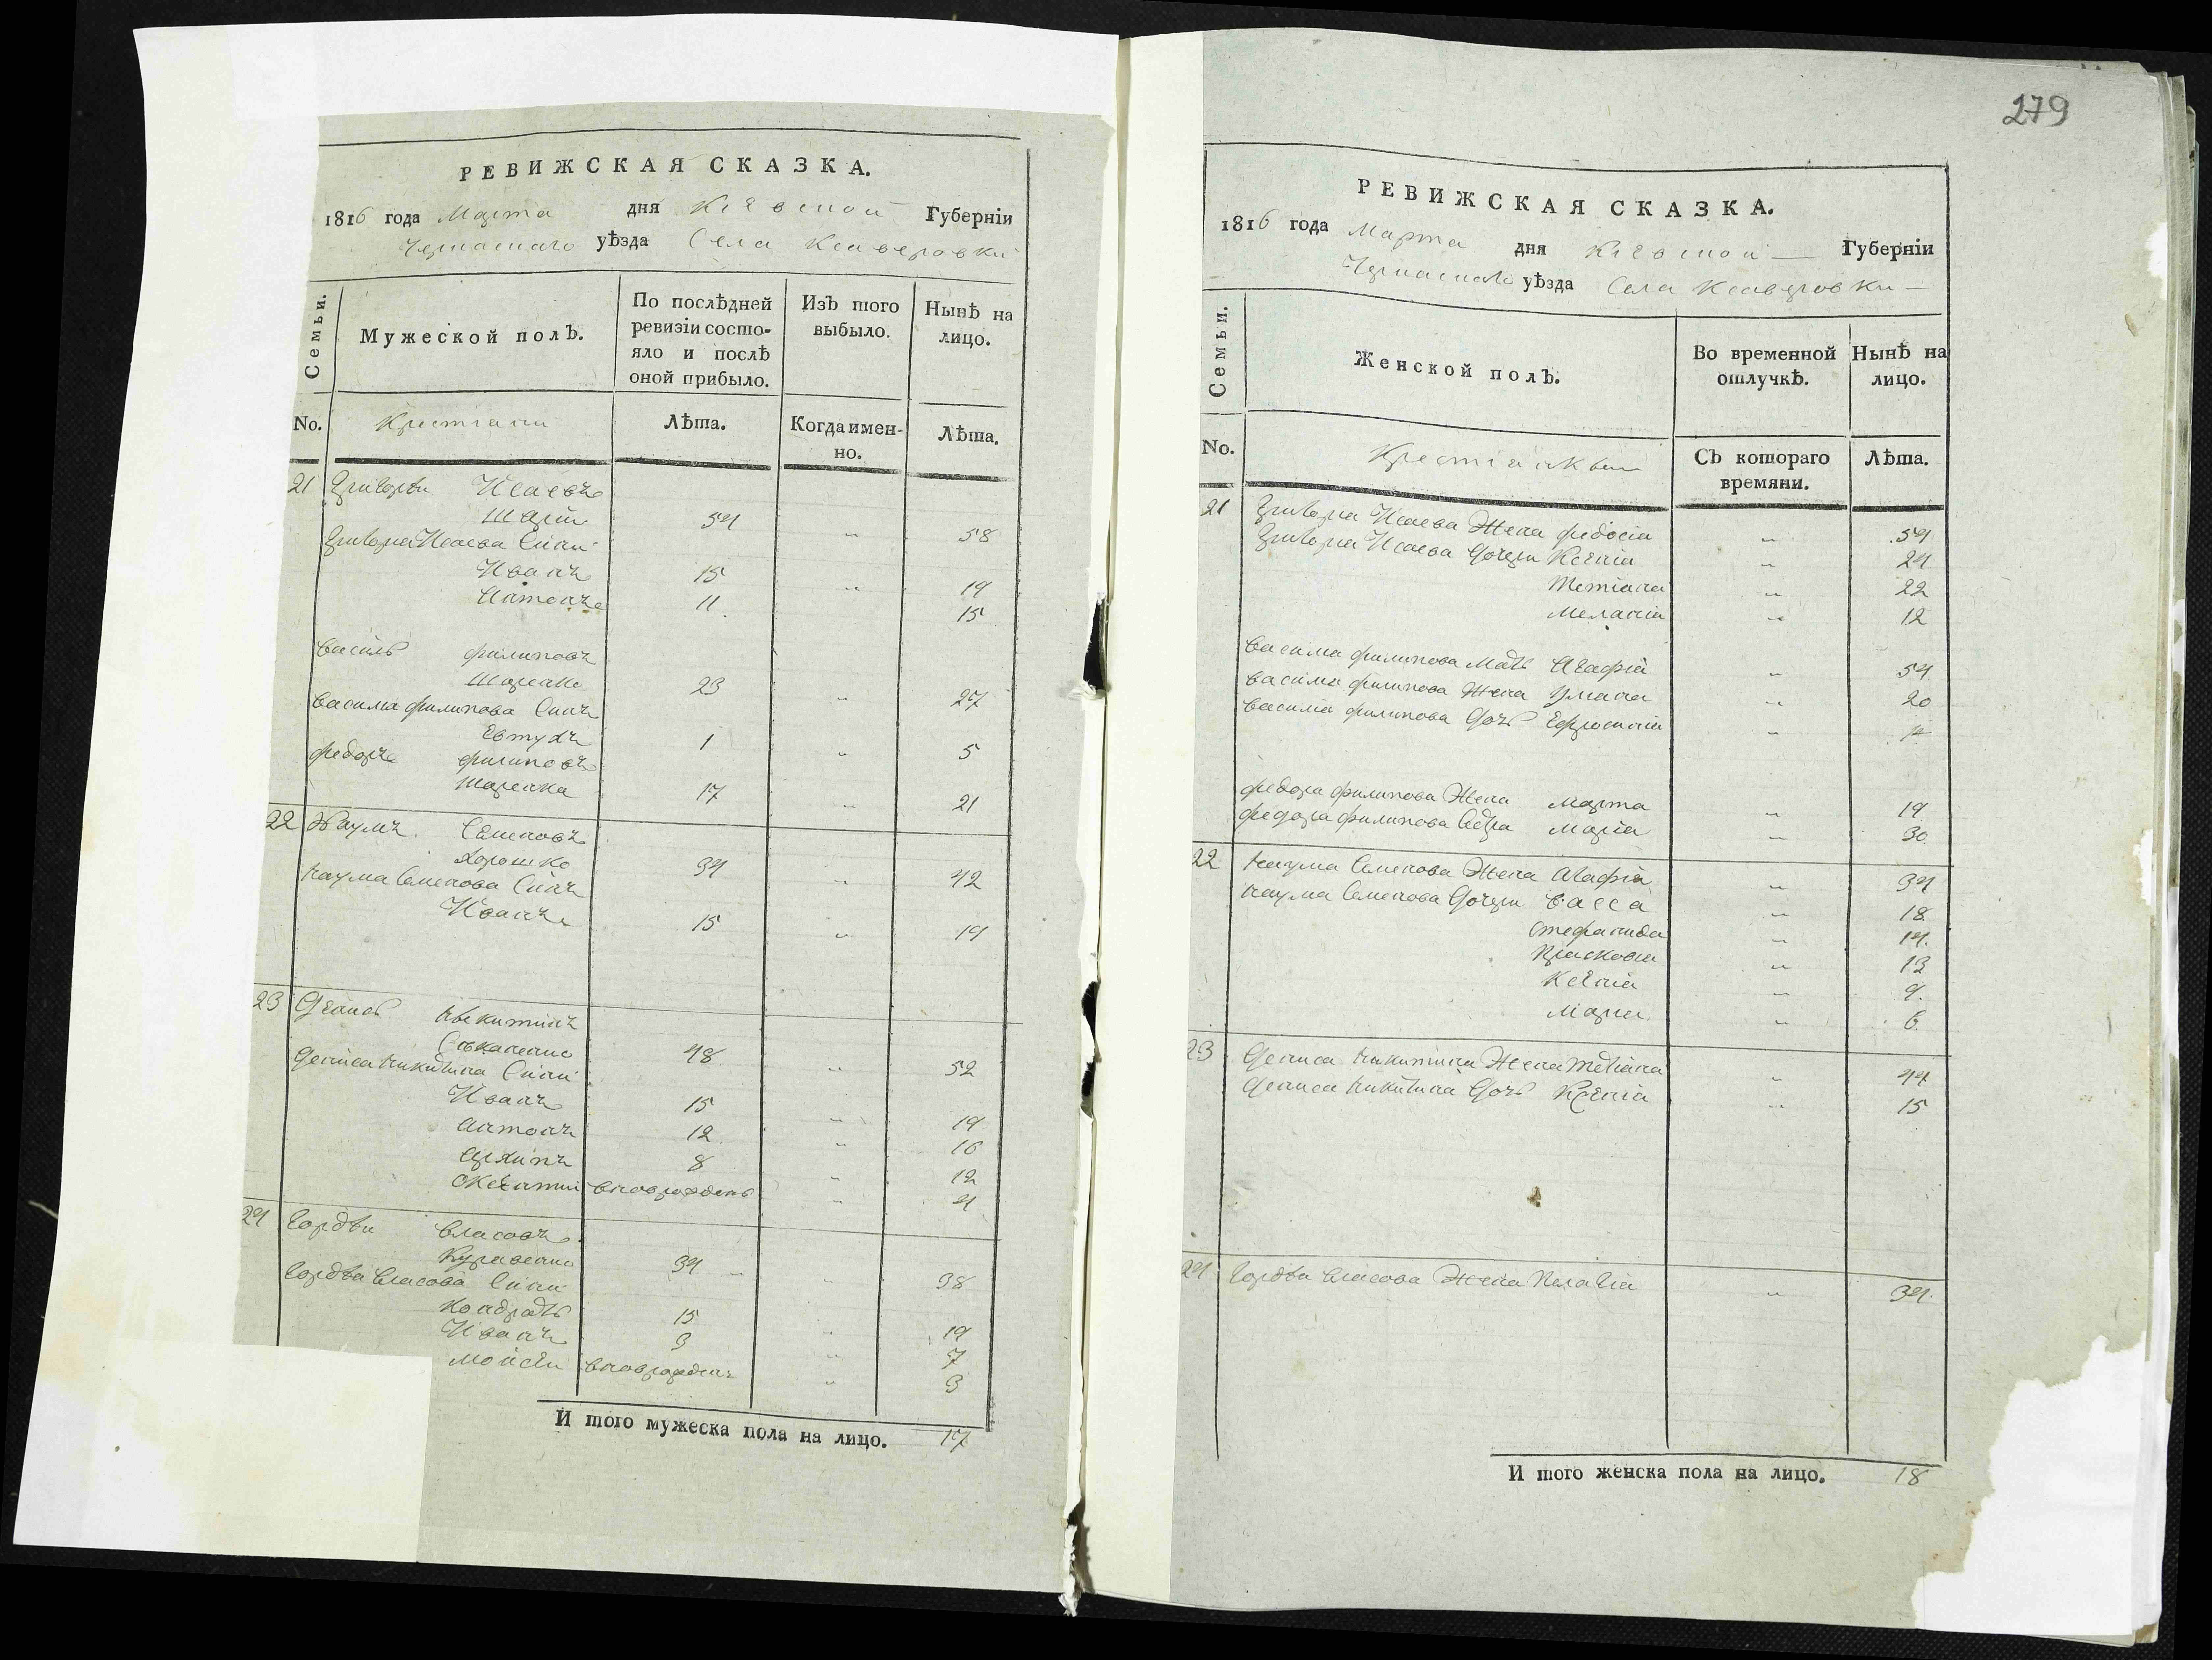 РЕВИЖСКАЯ СКАЗКА.
1816 года Марта дня Кіевской Губерніи
Черкаскаго уѣзда Села Ксаверовки
Семьи.
Мужеской полъ.
По послѣдней ревизіи состояло и послѣ оной прибыло.
Изъ того выбыло.
Нынѣ на лицо.
No. Крестіани Лѣта. Когда именно. Лѣта.
21 Григорѣи Исаевъ
54 " 58
Григориа Исаева Сини
Иванъ 15 " 19
Антонъ 11. 15
Василь Филиповъ
23 " 27
Василиа Филипова Синъ
Евтухъ 1 " 5
Федоръ Филиповъ
17 " 21
22 Наумъ Семеновъ
Хорошко 34 " 42
Наума Семенова Синъ
Иванъ 15 " 19
23 Денисъ Никитинъ
48 " 52
Дениса Никитина Сини
Иванъ 15 " 19
Антонъ 12 " 16
Архипъ 8 " 12
вноврожденъ " 4
24 Гордѣи Власовъ
34 " 38
Гордѣа Власова Сини
Кондратъ 15 " 19
Иванъ 3 " 7
Моисеи вноврожденъ " 3
И того мужеска пола на лицо. 17
279
РЕВИЖСКАЯ СКАЗКА.
1816 года Марта дня Кіевской Губерніи
Черкаскаго уѣзда Села Ксаверовки
Семьи.
Женской полъ.
Во временной отлучкѣ.
Нынѣ на лицо.
No. Крестіанки Съ котораго времяни. Лѣта.
21 Григориа Исаева Жена Федосіа " 54
Григориа Исаева Дочери Ксеніа " 24
Тетіана " 22
Меланіа " 12
Василиа Филипова Мать Агафіа " 54
Василиа Филипова Жена Улиана " 20
Василиа Филипова Дочь Ефросиніа "
Федора Филипова Жена Марта " 19
Федора Филипова Сестра Маріа " 30
22 Наума Семенова Жена Агафіа " 34
Наума Семенова Дочери Васса " 18
Стефанида " 14.
Прасковиа " 13
Ксеніа " 9.
Мариа " 6.
23 Дениса Никитина Жена Тетіана " 44
Дениса Никитина Дочь Ксеніа " 15
24 Гордѣа Власова Жена Пелагіа " 34.
И того женска пола на лицо. 18